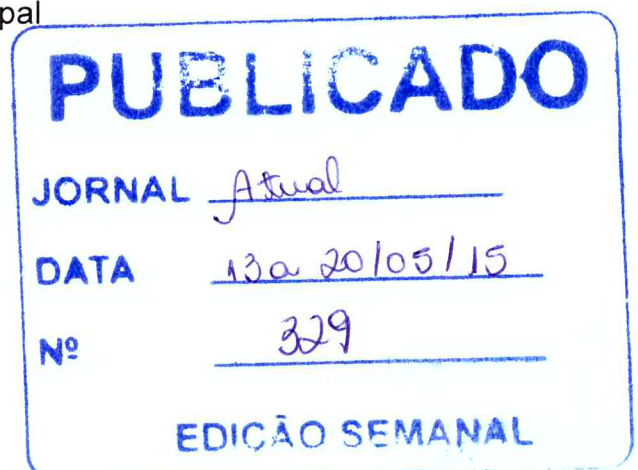 pal
PUBLICADO
JORNAL Atual
DATA 13 a 20/05/15
Nº 329
EDIÇÃO SEMANAL